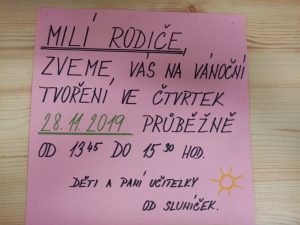 MILÍ RODIČE,
ZVEME VÁS NA VÁNOČNÍ
TVOŘENÍ VE ČTVRTEK
28.11.2019 PRŮBĚŽNĚ
OD 13⁴⁵ DO 15³⁰ HOD.
DĚTI A PANÍ UČITELKY
OD SLUNÍČEK.